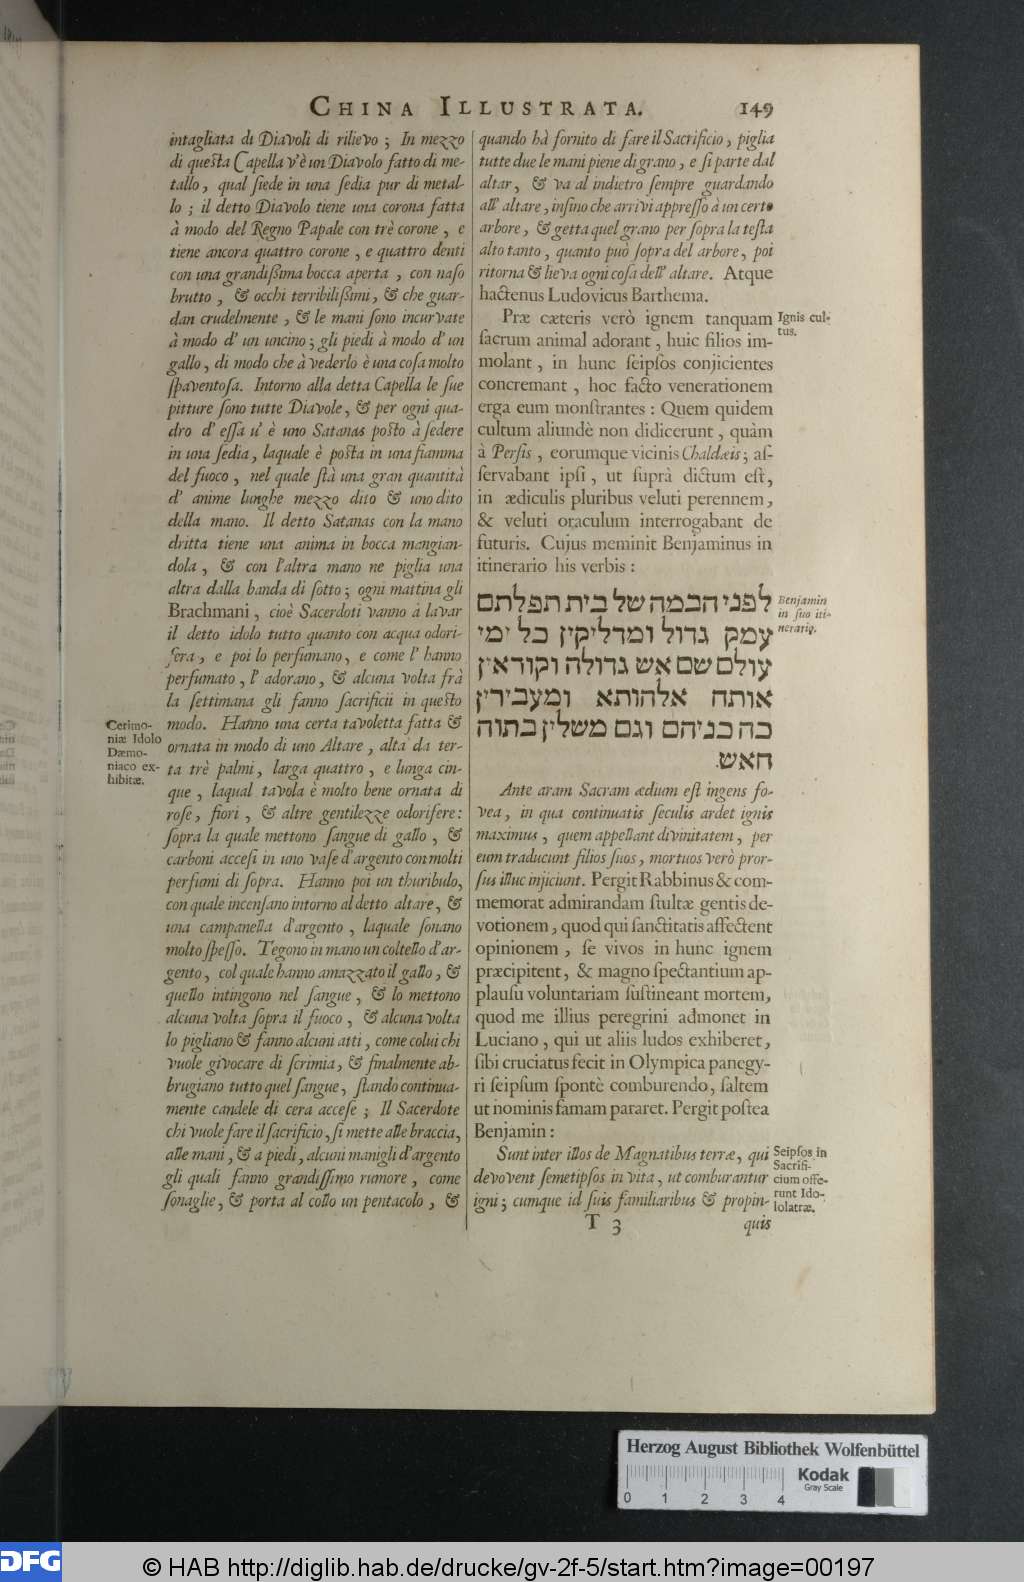 CHINA ILLUSTRATA. 149
intagliata di Diavoli di rilievo; In mezzo
di questa Capella v'è un Diavolo fatto di me-
tallo, qual ſiede in una ſedia pur di metal-
lo; il detto Diavolo tiene una corona fatta
à modo del Regno Papale con trè corone, e
tiene ancora quattro corone, e quattro denti
con una grandiſsima bocca aperta, con naſo
brutto, & occhi terribiliſsimi, & che guar-
dan crudelmente, & le mani ſono incurvate
à modo d'un uncino; gli piedi à modo d'un
gallo, di modo che à vederlo è una coſa molto
ſpaventoſa. Intorno alla detta Capella le ſue
pitture ſono tutte Diavole, & per ogni qua-
dro d'eſſa u' è uno Satanas posto à ſedere
in una ſedia, laquale è posta in una fiamma
del fuoco, nel quale stà una gran quantità
d'anime lunghe mezzo dito & uno dito
della mano. Il detto Satanas con la mano
dritta tiene una anima in bocca mangian-
dola, & con l'altra mano ne piglia una
altra dalla banda di ſotto; ogni mattina gli
Brachmani, cioè Sacerdoti vanno à lavar
il detto idolo tutto quanto con acqua odori-
fera, e poi lo perfumano, e come l'hanno
perfumato, l'adorano, & alcuna volta frà
la ſettimana gli fanno ſacrificii in questo
modo. Hanno una certa tavoletta fatta &
ornata in modo di uno Altare, alta da ter-
ta trè palmi, larga quattro, e lunga cin-
que, laqual tavola è molto bene ornata di
roſe, fiori, & altre gentilezze odorifere:
ſopra la quale mettono ſangue di gallo, &
carboni acceſi in uno vaſe d'argento con molti
perfumi di ſopra. Hanno poi un thuribulo,
con quale incenſano intorno al detto altare, &
una campanella d'argento, laquale ſonano
molto ſpeſſo. Tegono in mano un coltello d'ar-
gento, col quale hanno amazzato il gallo, &
quello intingono nel ſangue, & lo mettono
alcuna volta ſopra il fuoco, & alcuna volta
lo pigliano & fanno alcuni atti, come colui chi
vuole givocare di ſcrimia, & finalmente ab-
brugiano tutto quel ſangue, ſtando continua-
mente candele di cera acceſe; Il Sacerdote
chi vuole fare il ſacrificio, ſi mette alle braccia,
alle mani, & a piedi, alcuni manigli d'argento
gli quali fanno grandiſſimo rumore, come
ſonaglie, & porta al collo un pentacolo, &
Cerimo-
niæ Idolo
Dæmo-
niaco ex-
hibitæ.
quando hà fornito di fare il Sacrificio, piglia
tutte due le mani piene di grano, e ſi parte dal
altar, & va al indietro ſempre guardando
all'altare, inſino che arrivi appreſſo à un certo
arbore, & getta quel grano per ſopra la teſta
alto tanto, quanto può ſopra del arbore, poi
ritorna & lieva ogni coſa dell'altare. Atque
hactenus Ludovicus Barthema.
Præ cæteris verò ignem tanquam
ſacrum animal adorant, huic filios im-
molant, in hunc ſeipſos conjicientes
concremant, hoc facto venerationem
erga eum monſtrantes: Quem quidem
cultum aliundè non didicerunt, quàm
à Perſis, eorumque vicinis Chaldæis; aſ-
ſervabant ipſi, ut ſuprà dictum eſt,
in ædiculis pluribus veluti perennem,
& veluti oraculum interrogabant de
futuris. Cujus meminit Benjaminus in
itinerario his verbis:
Ignis cul-
tus.
לפני הבמה של בית תפלתם
עמק גדול ומדליקין כל ימי
עולם שם אש גדולה וקוראין
אותה אלהותא ומעבירין
בה בניהם וגם משלין בתוה
האש.
Benjamin
in ſuo iti-
nerario.
Ante aram Sacram ædium eſt ingens fo-
vea, in qua continuatis ſeculis ardet ignis
maximus, quem appellant divinitatem, per
eum traducunt filios ſuos, mortuos verò pror-
ſus illuc injiciunt. Pergit Rabbinus & com-
memorat admirandam ſtultæ gentis de-
votionem, quod qui ſanctitatis affectent
opinionem, ſe vivos in hunc ignem
præcipitent, & magno ſpectantium ap-
plauſu voluntariam ſuſtineant mortem,
quod me illius peregrini admonet in
Luciano, qui ut aliis ludos exhiberet,
ſibi cruciatus fecit in Olympica panegy-
ri ſeipſum ſpontè comburendo, ſaltem
ut nominis famam pararet. Pergit poſtea
Benjamin:
Sunt inter illos de Magnatibus terræ, qui
devovent ſemetipſos in vita, ut comburantur
igni; cumque id ſuis familiaribus & propin-
Seipſos in
Sacrifi-
cium offe-
runt Ido-
lolatræ.
T 3 quis
Herzog August Bibliothek Wolfenbüttel
Kodak
Gray Scale
0 1 2 3 4
DFG
© HAB http://diglib.hab.de/drucke/gv-2f-5/start.htm?image=00197